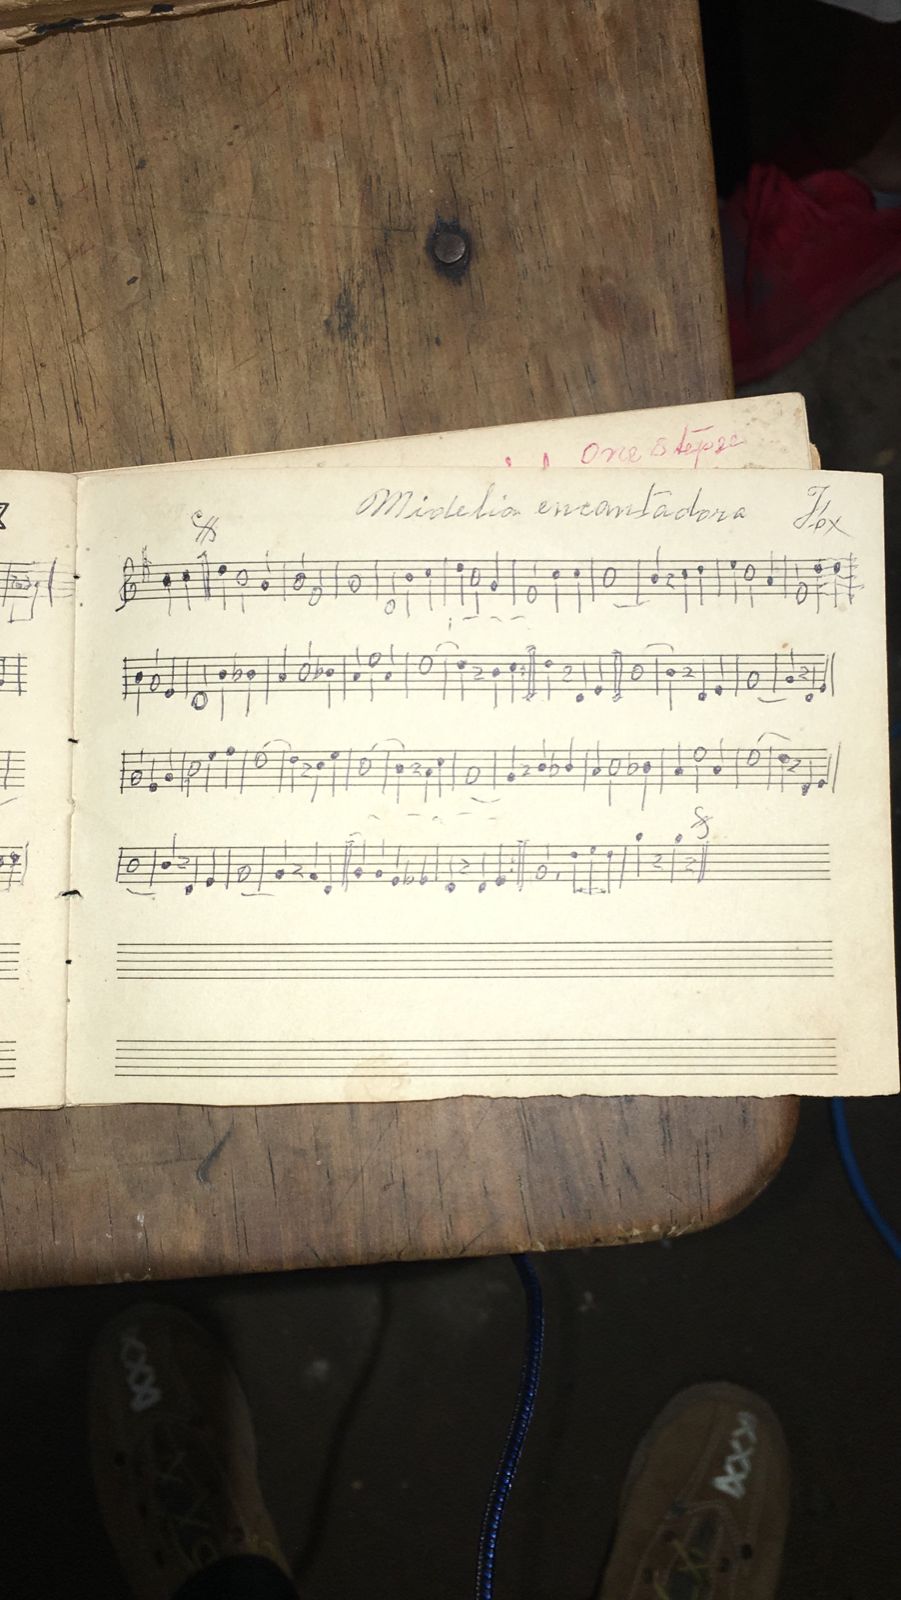 One Stepze
Midelia encantadora Fox